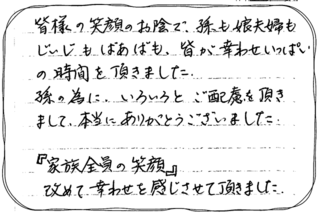 皆様の笑顔のお陰で、孫も娘夫婦も
じいじもばあばも、皆が幸わせいっぱい
の時間を頂きました。
孫の為に、いろいろと ご配慮を頂き
まして、本当にありがとうございました。
『家族全員の笑顔』
改めて幸わせを感じさせて頂きました。